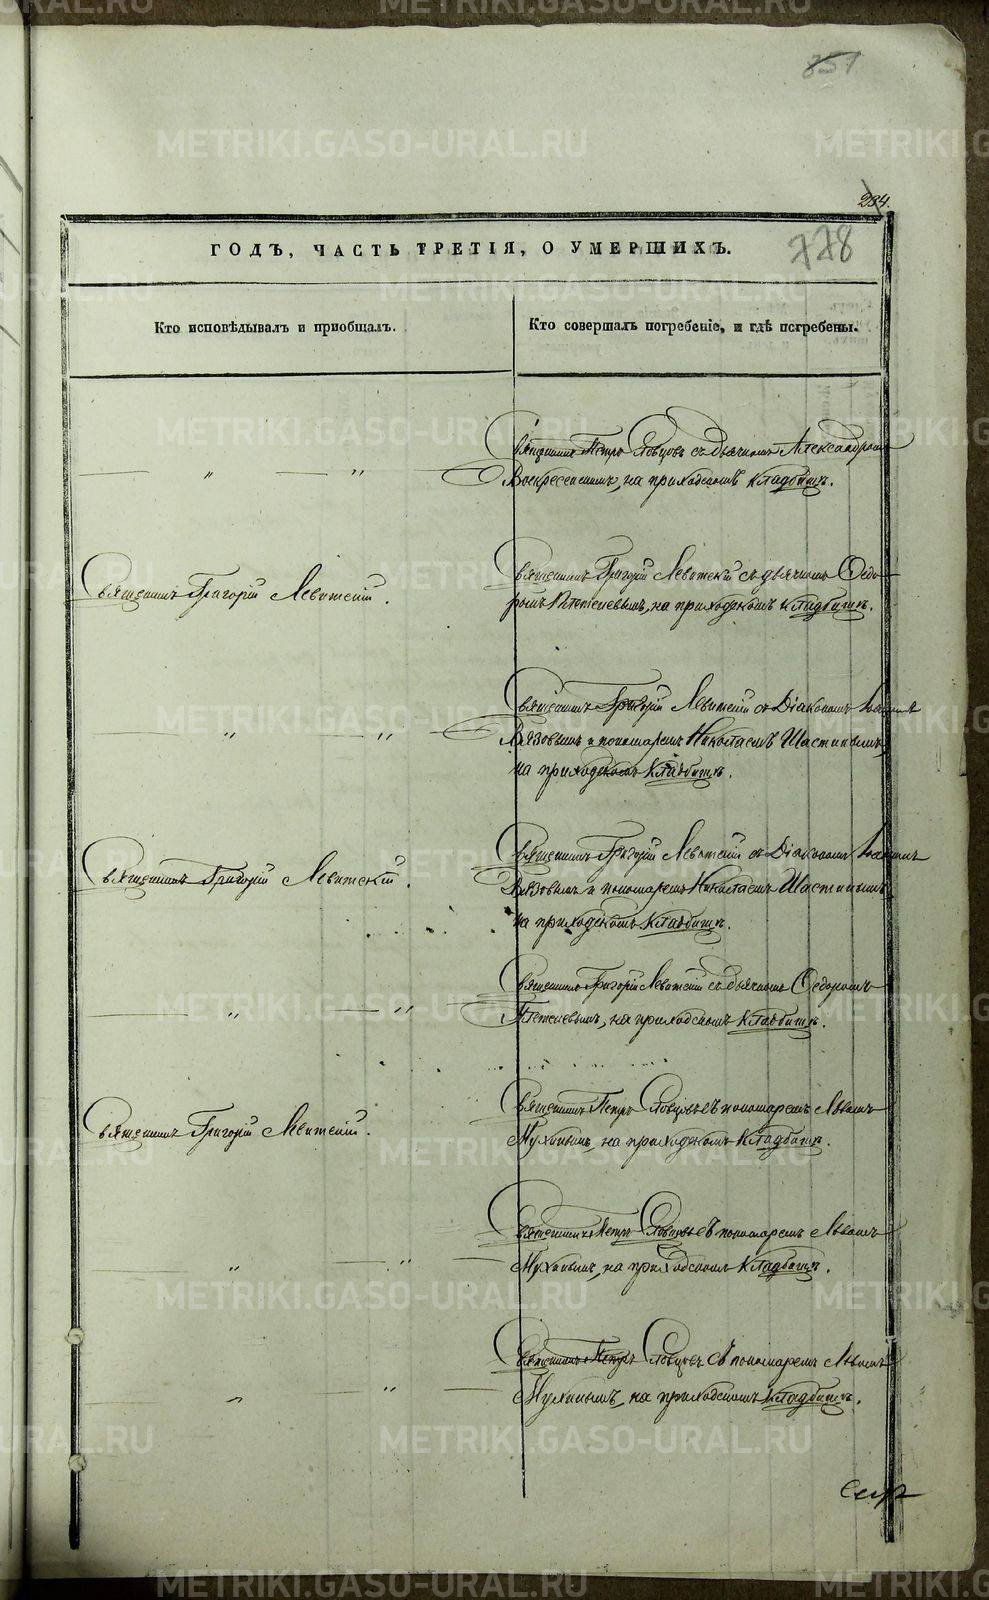 METRIKI.GASO-URAL.RU
351
234.
ГОДЪ, ЧАСТЬ ТРЕТІЯ, О УМЕРШИХЪ.
778
Кто исповѣдывалъ и пріобщалъ.
Кто совершалъ погребеніе, и гдѣ погребены.
Священникъ Петръ Словцовъ съ дьячкомъ Александромъ
Воскресенскимъ, на приходскомъ кладбищѣ.
Священникъ Григорій Левитскій.
Священникъ Григорій Левитскій съ дьячкомъ Ѳедо-
ромъ Плетеневымъ, на приходскомъ кладбищѣ.
Священникъ Григорій Левитскій съ Діакономъ
и пономаремъ Николаемъ Шастинымъ,
на приходскомъ кладбищѣ.
Священникъ Григорій Левитскій.
Священникъ Григорій Левитскій съ Діакономъ
и пономаремъ Николаемъ Шастинымъ,
на приходскомъ кладбищѣ.
Священникъ Григорій Левитскій съ дьячкомъ Ѳедоромъ
Плетеневымъ, на приходскомъ кладбищѣ.
Священникъ Григорій Левитскій.
Священникъ Петръ Словцовъ съ пономаремъ Львомъ
Мухинымъ, на приходскомъ кладбищѣ.
Священникъ Петръ Словцовъ съ пономаремъ Львомъ
Мухинымъ, на приходскомъ кладбищѣ.
Священникъ Петръ Словцовъ съ пономаремъ Львомъ
Мухинымъ, на приходскомъ кладбищѣ.